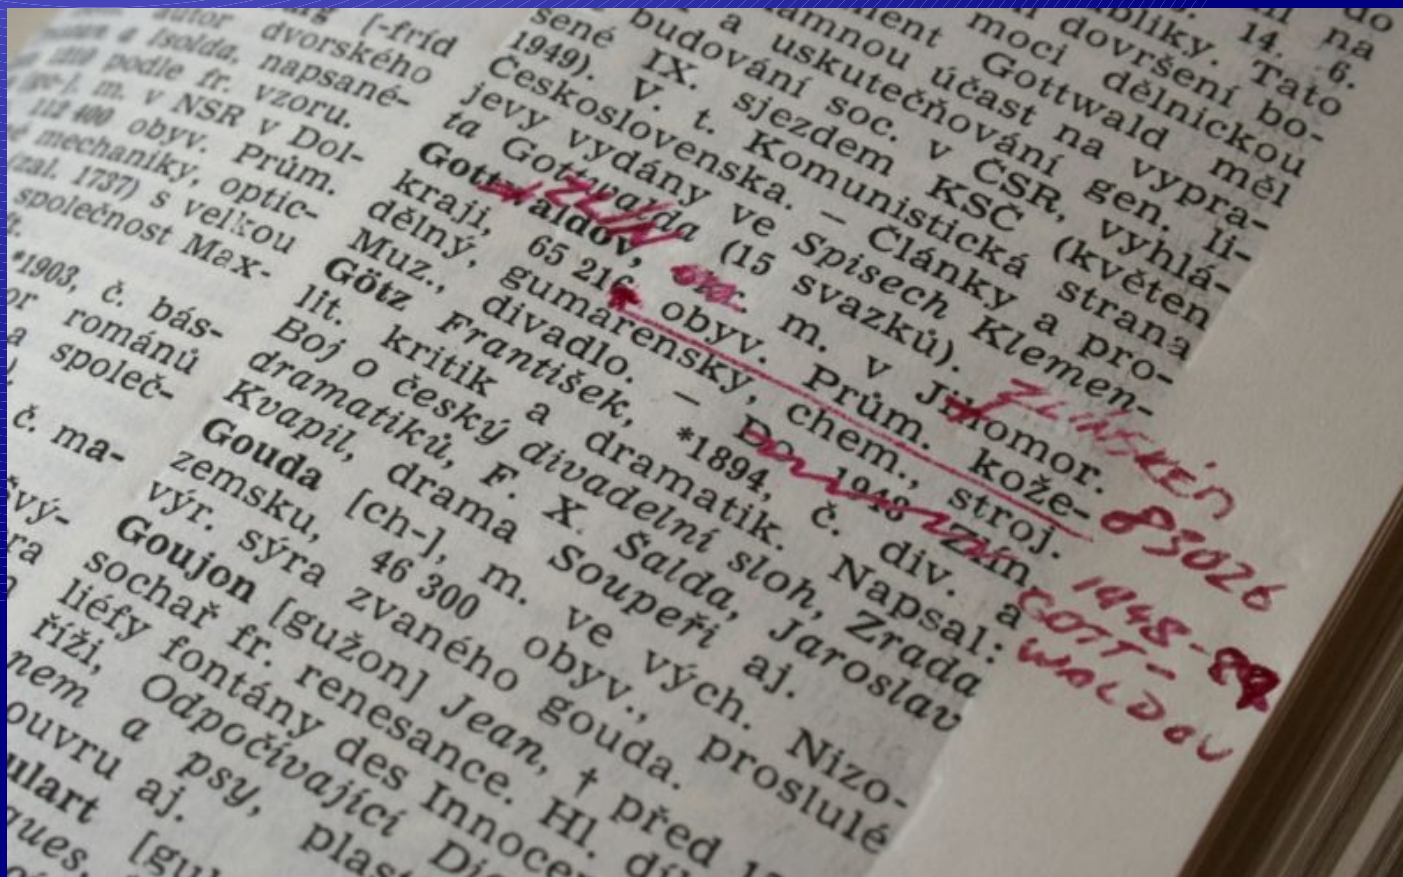 [-fríd
autor dvorského
a Isolda, napsané-
1210 podle fr. vzoru.
[ge-], m. v NSR v Dol-
112 400 obyv. Prům.
mechaniky, optic-
(zal. 1737) s velkou
společnost Max-
*1903, č. bás-
románů
a společ-
č. ma-
do
na
14. 6.
bliky. Tato
dovršení bo-
moci dělnickou
Gottwald měl
účast na vypra-
a uskutečňování gen. li-
budování soc. v ČSR, vyhlá-
šené IX. sjezdem KSČ (květen
1949). V. t. Komunistická strana
Československa. – Články a pro-
jevy vydány ve Spisech Klemen-
ta Gottwalda (15 svazků).
ZLÍN
Gottwaldov, m. v Jihomor.
ZLÍNSKÉM
kraji, 65 216 obyv. Prům. kože-
83026
dělný, gumárenský, chem., stroj.
Muz., divadlo. – Do 1948 Zlín.
1948-89
GOTT-
WALDOV
Götz František, *1894, č. div. a
lit. kritik a dramatik. Napsal:
Boj o český divadelní sloh, Zrada
dramatiků, F. X. Šalda, Jaroslav
Kvapil, drama Soupeři aj.
Gouda [ch-], m. ve vých. Nizo-
zemsku, 46 300 obyv., proslulé
výr. sýra zvaného gouda.
Goujon [gužon] Jean, † před
sochař fr. renesance. Hl. díl
liéfy fontány des Innocen
říži, Odpočívající Di
nem a psy, plast
ouvru aj.
ulart [gu
ques,